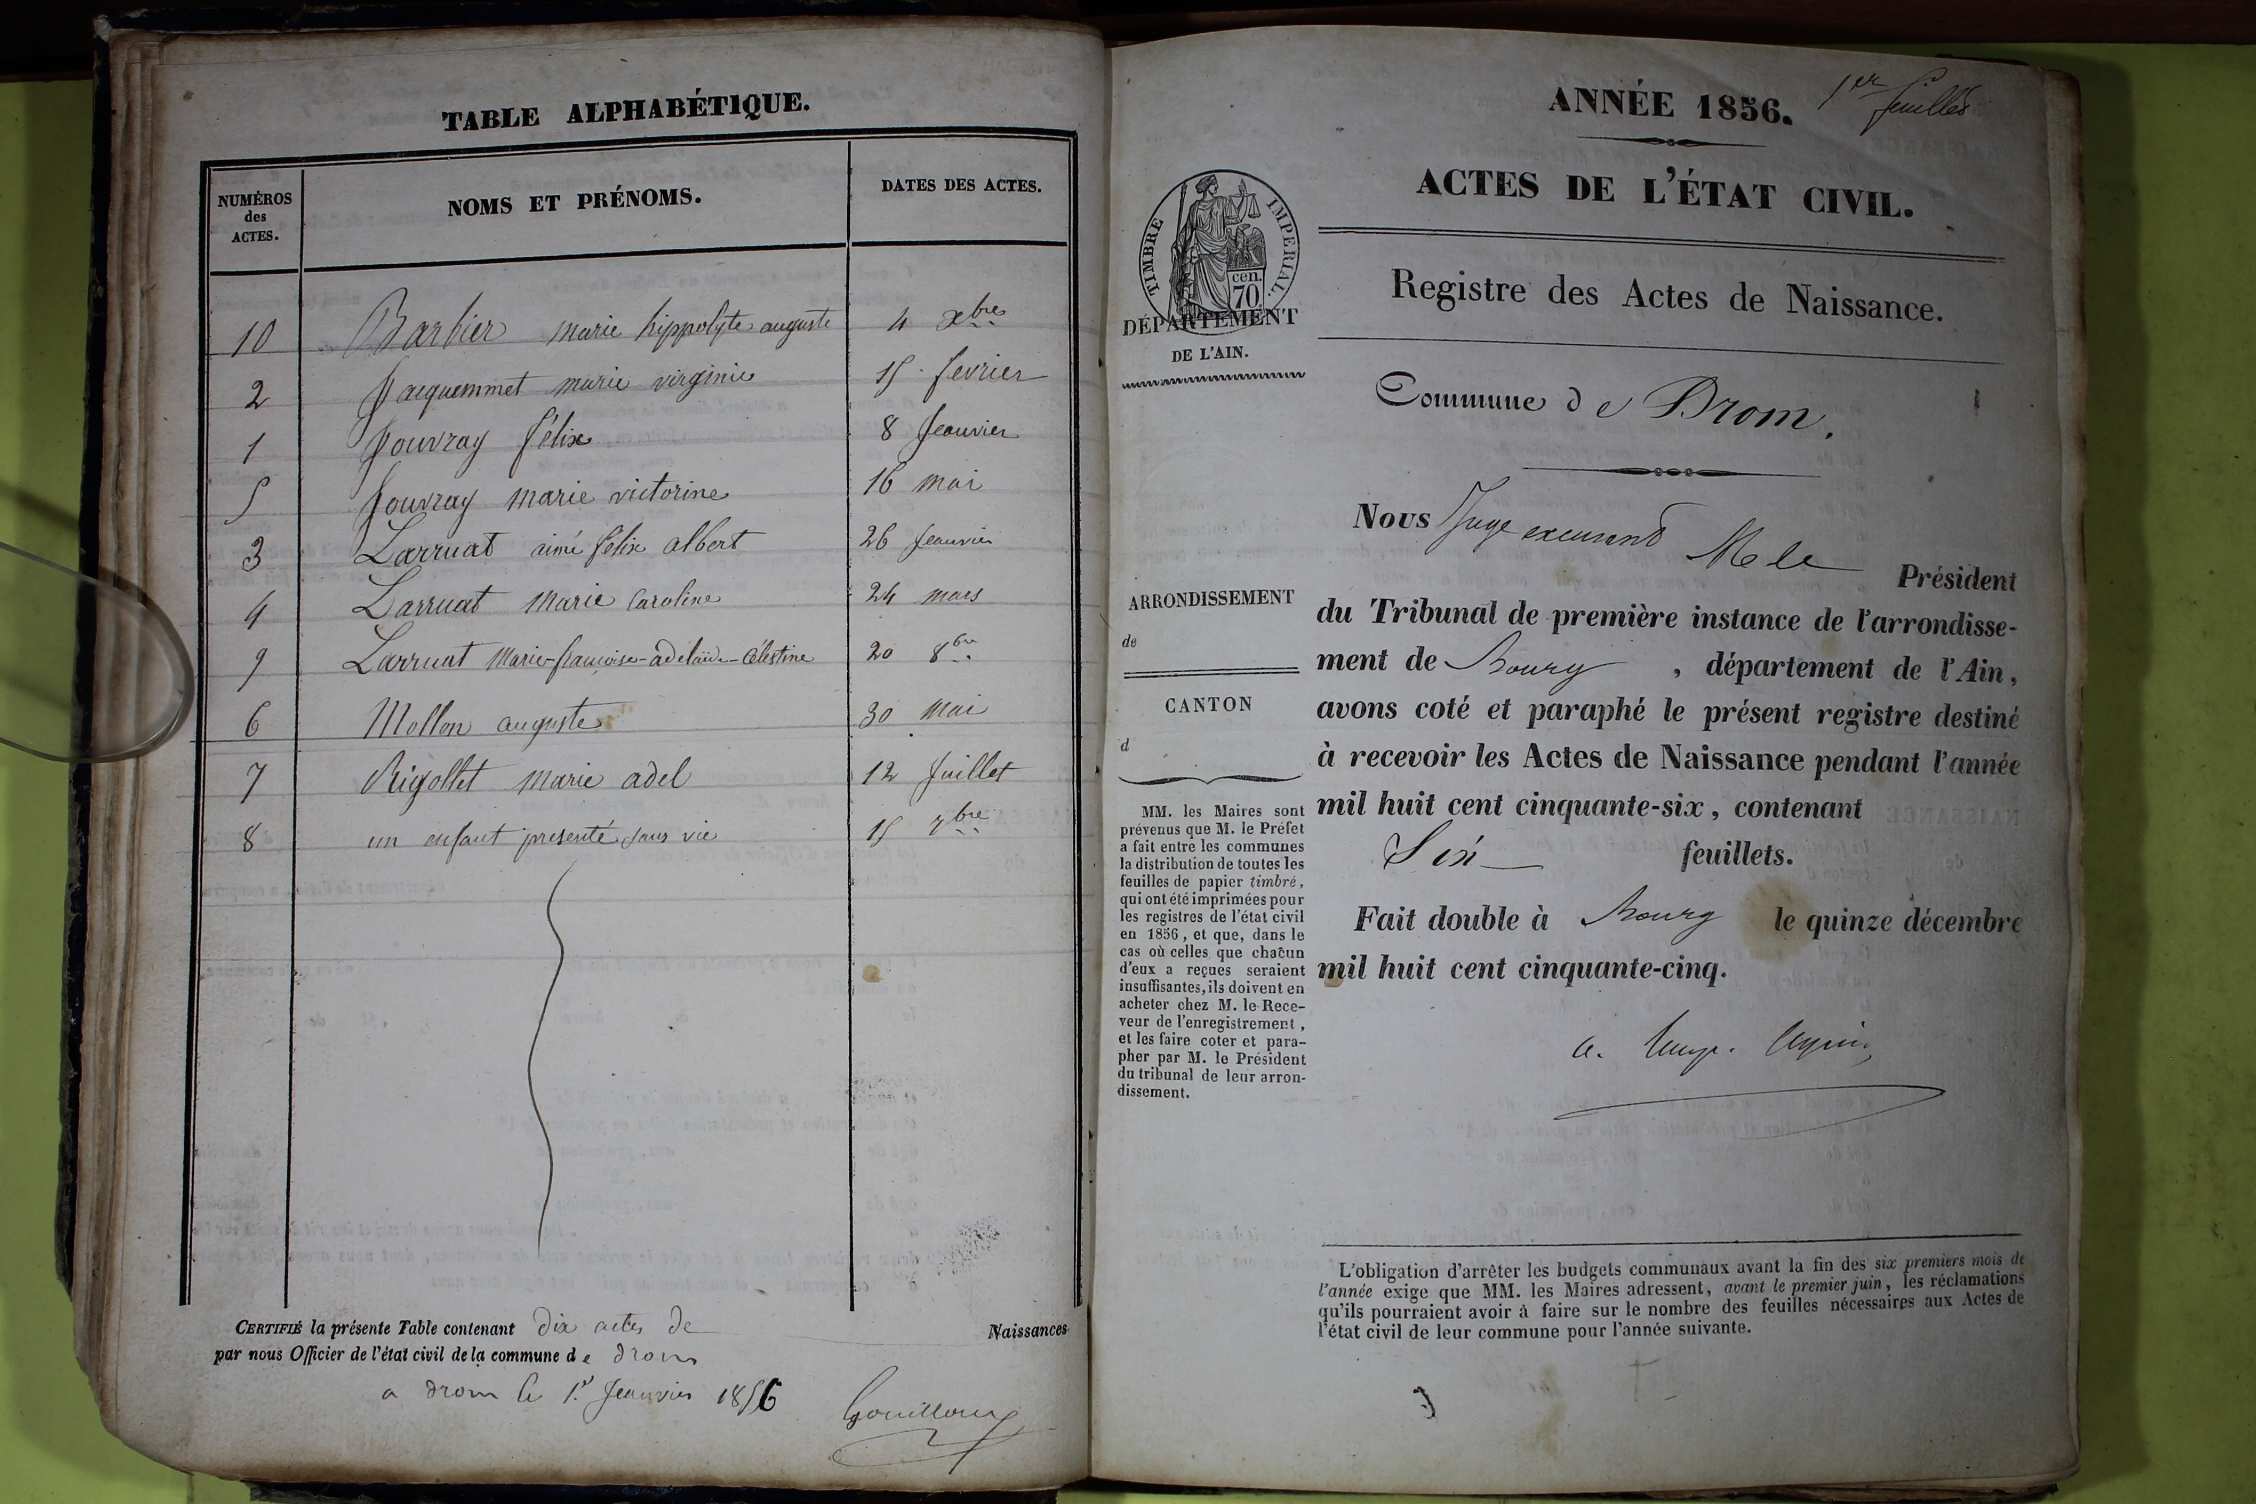 TABLE ALPHABÉTIQUE.
NUMÉROS des ACTES. NOMS ET PRÉNOMS. DATES DES ACTES.
10 Barbier marie hippolyte auguste 4 xbre
2 Jacquemmet marie virginie 15 fevrier
1 Jouvray félix 8 Jeanvier
5 Jouvray marie victorine 16 mai
3 Larruat aimé félix albert 26 Jeanvier
4 Larruat Marie Caroline 24 mars
9 Larruat Marie-françoise-adelaïde-Célestine 20 8bre
6 Mollon auguste 30 mai
7 Rigollet marie adel 12 Juillet
8 un enfant presenté sans vie 15 7bre
CERTIFIÉ la présente Table contenant dix actes de Naissances
par nous Officier de l'état civil de la commune de drom
a drom le 1er Jeanvier 1856
Gouilloux
1er feuillet
ANNÉE 1856.
ACTES DE L'ÉTAT CIVIL.
Registre des Actes de Naissance.
TIMBRE IMPERIAL.
cen.
70
DÉPARTEMENT
DE L'AIN.
Commune de Drom.
ARRONDISSEMENT
de
CANTON
d
MM. les Maires sont
prévenus que M. le Préfet
a fait entre les communes
la distribution de toutes les
feuilles de papier timbré,
qui ont été imprimées pour
les registres de l'état civil
en 1856, et que, dans le
cas où celles que chacun
d'eux a reçues seraient
insuffisantes, ils doivent en
acheter chez M. le Rece-
veur de l'enregistrement,
et les faire coter et para-
pher par M. le Président
du tribunal de leur arron-
dissement.
Nous Juge excusant Mr le Président
du Tribunal de première instance de l'arrondisse-
ment de Bourg, département de l'Ain,
avons coté et paraphé le présent registre destiné
à recevoir les Actes de Naissance pendant l'année
mil huit cent cinquante-six, contenant
Six feuillets.
Fait double à Bourg le quinze décembre
mil huit cent cinquante-cinq.
L'obligation d'arrêter les budgets communaux avant la fin des six premiers mois de
l'année exige que MM. les Maires adressent, avant le premier juin, les réclamations
qu'ils pourraient avoir à faire sur le nombre des feuilles nécessaires aux Actes de
l'état civil de leur commune pour l'année suivante.